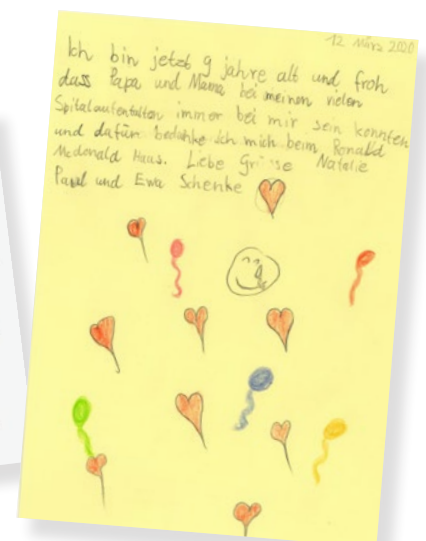 12 März 2020
Ich bin jetzt 9 jahre alt und froh
dass Papa und Mama bei meinen vielen
Spitalaufenthalten immer bei mir sein konnten
und dafür bedanke ich mich beim Ronald
McDonald Haus. Liebe Grüsse Natalie
Pavel und Ewa Schenke